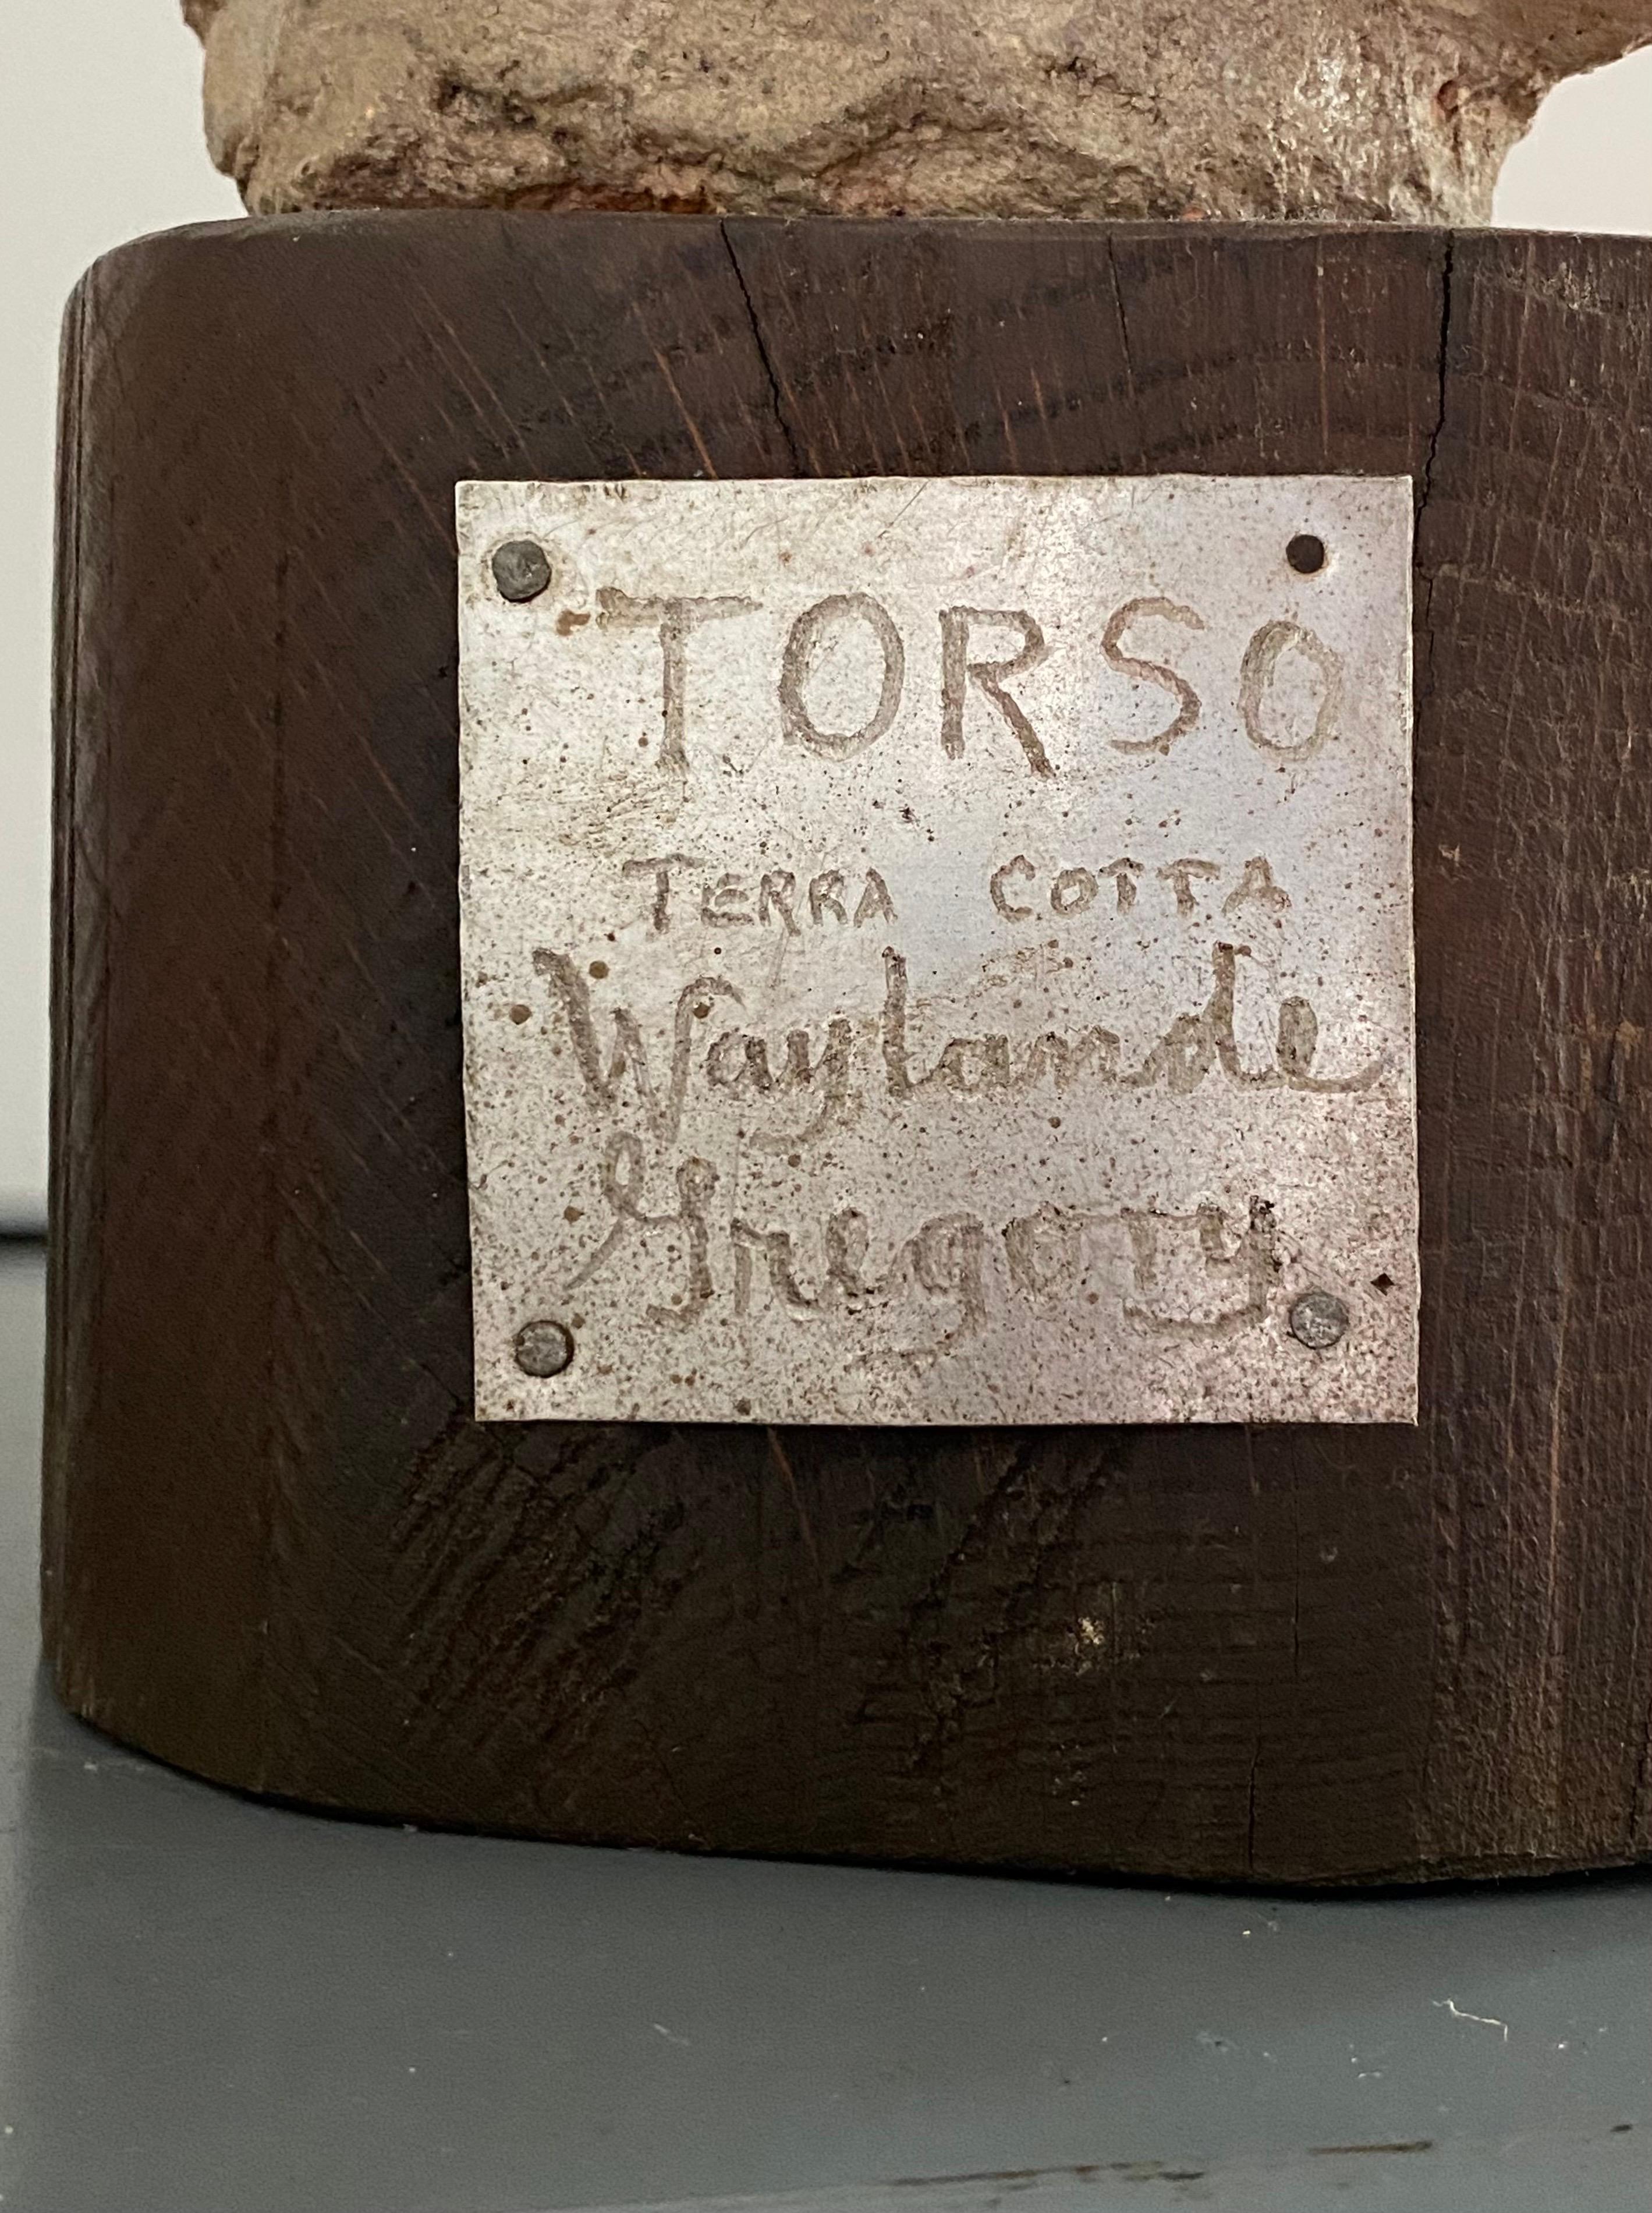 TORSO
TERRA COTTA
Waylande
Gregory